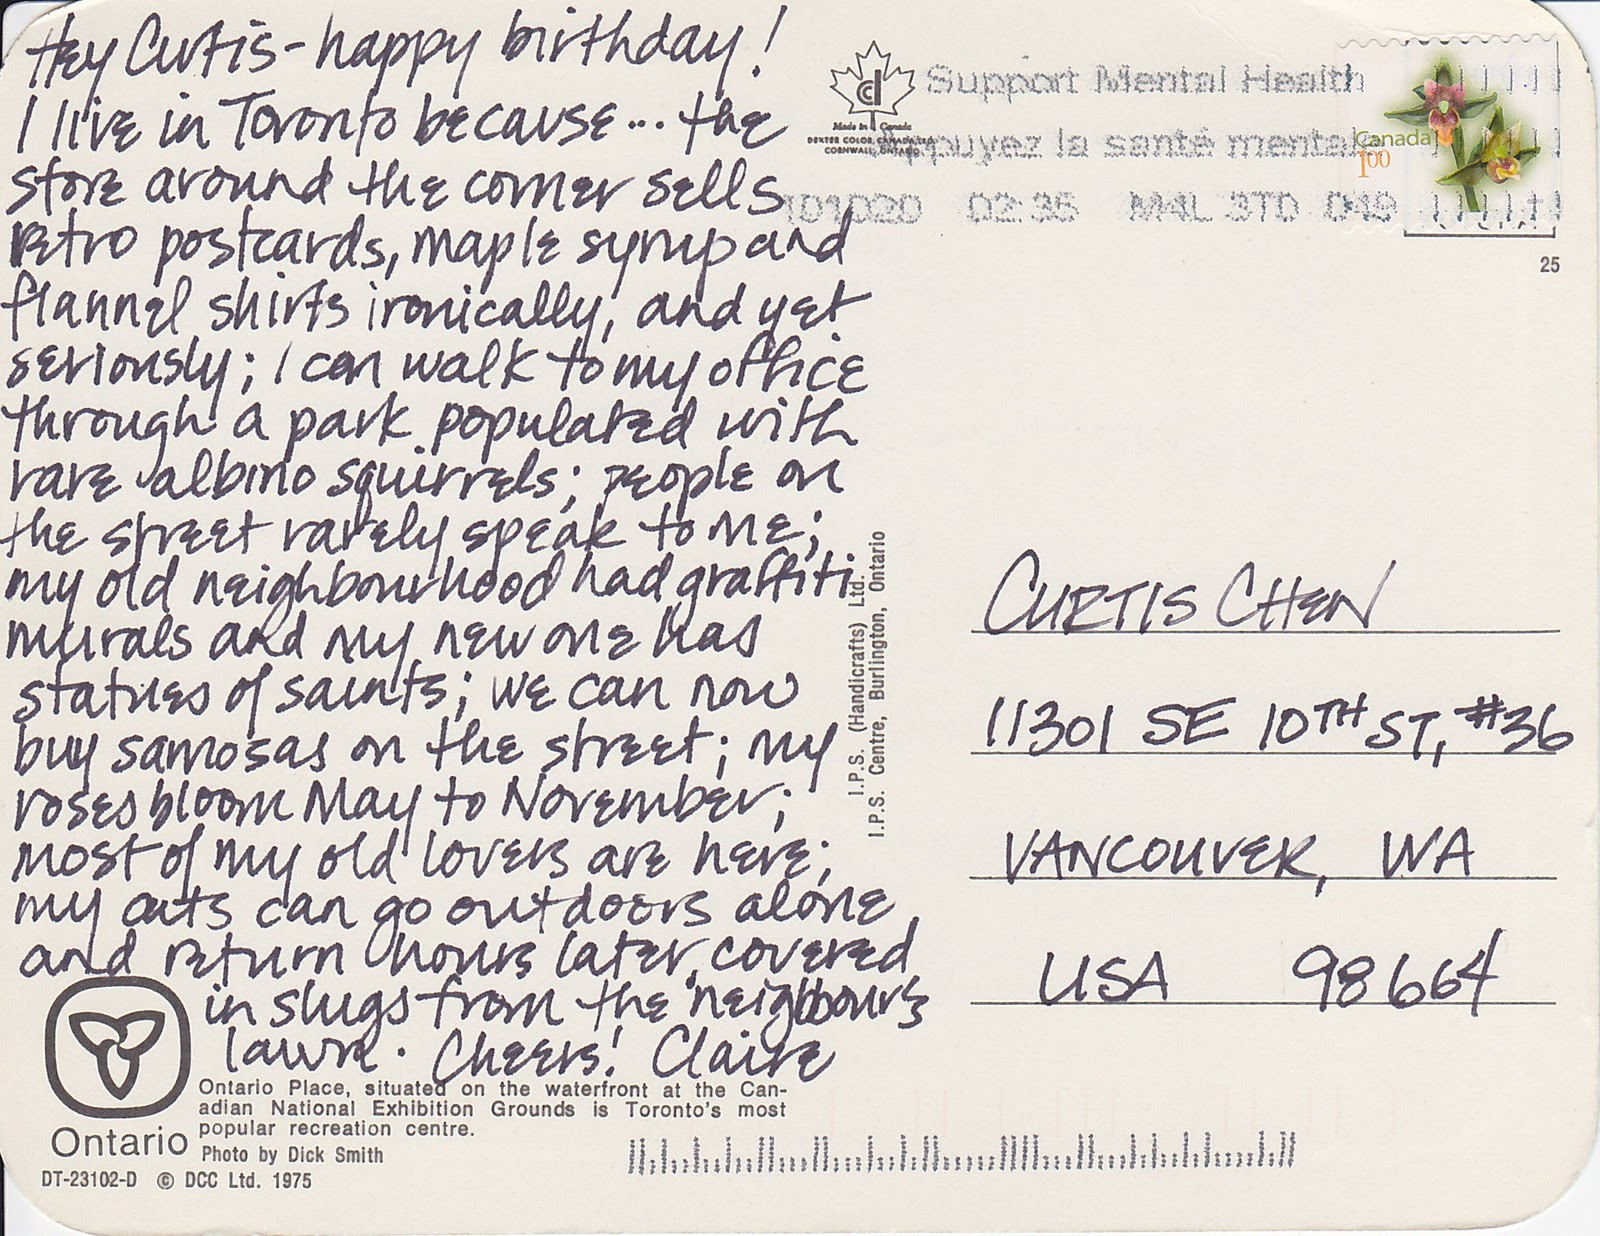 Hey Curtis - happy birthday!
I live in Toronto because... the
store around the corner sells
retro postcards, maple syrup and
flannel shirts ironically, and yet
seriously; I can walk to my office
through a park populated with
rare albino squirrels; people on
the street rarely speak to me;
my old neighbourhood had graffiti
murals and my new one has
statues of saints; we can now
buy samosas on the street; my
roses bloom May to November;
most of my old lovers are here;
my cats can go outdoors alone
and return hours later, covered
in slugs from the neighbour's
lawn. Cheers! Claire
Ontario Place, situated on the waterfront at the Can-
adian National Exhibition Grounds is Toronto's most
popular recreation centre.
Photo by Dick Smith
Ontario
DT-23102-D © DCC Ltd. 1975
I.P.S. (Handicrafts) Ltd.
I.P.S. Centre, Burlington, Ontario
cd
Made in Canada
DEXTER COLOR CANADA LTD.
CORNWALL, ONTARIO
Support Mental Health
Appuyez la santé mentale
101020 02:35 M4L 3T0
Canada
1.00
25
CURTIS CHEN
11301 SE 10TH ST, #36
VANCOUVER, WA
USA 98664